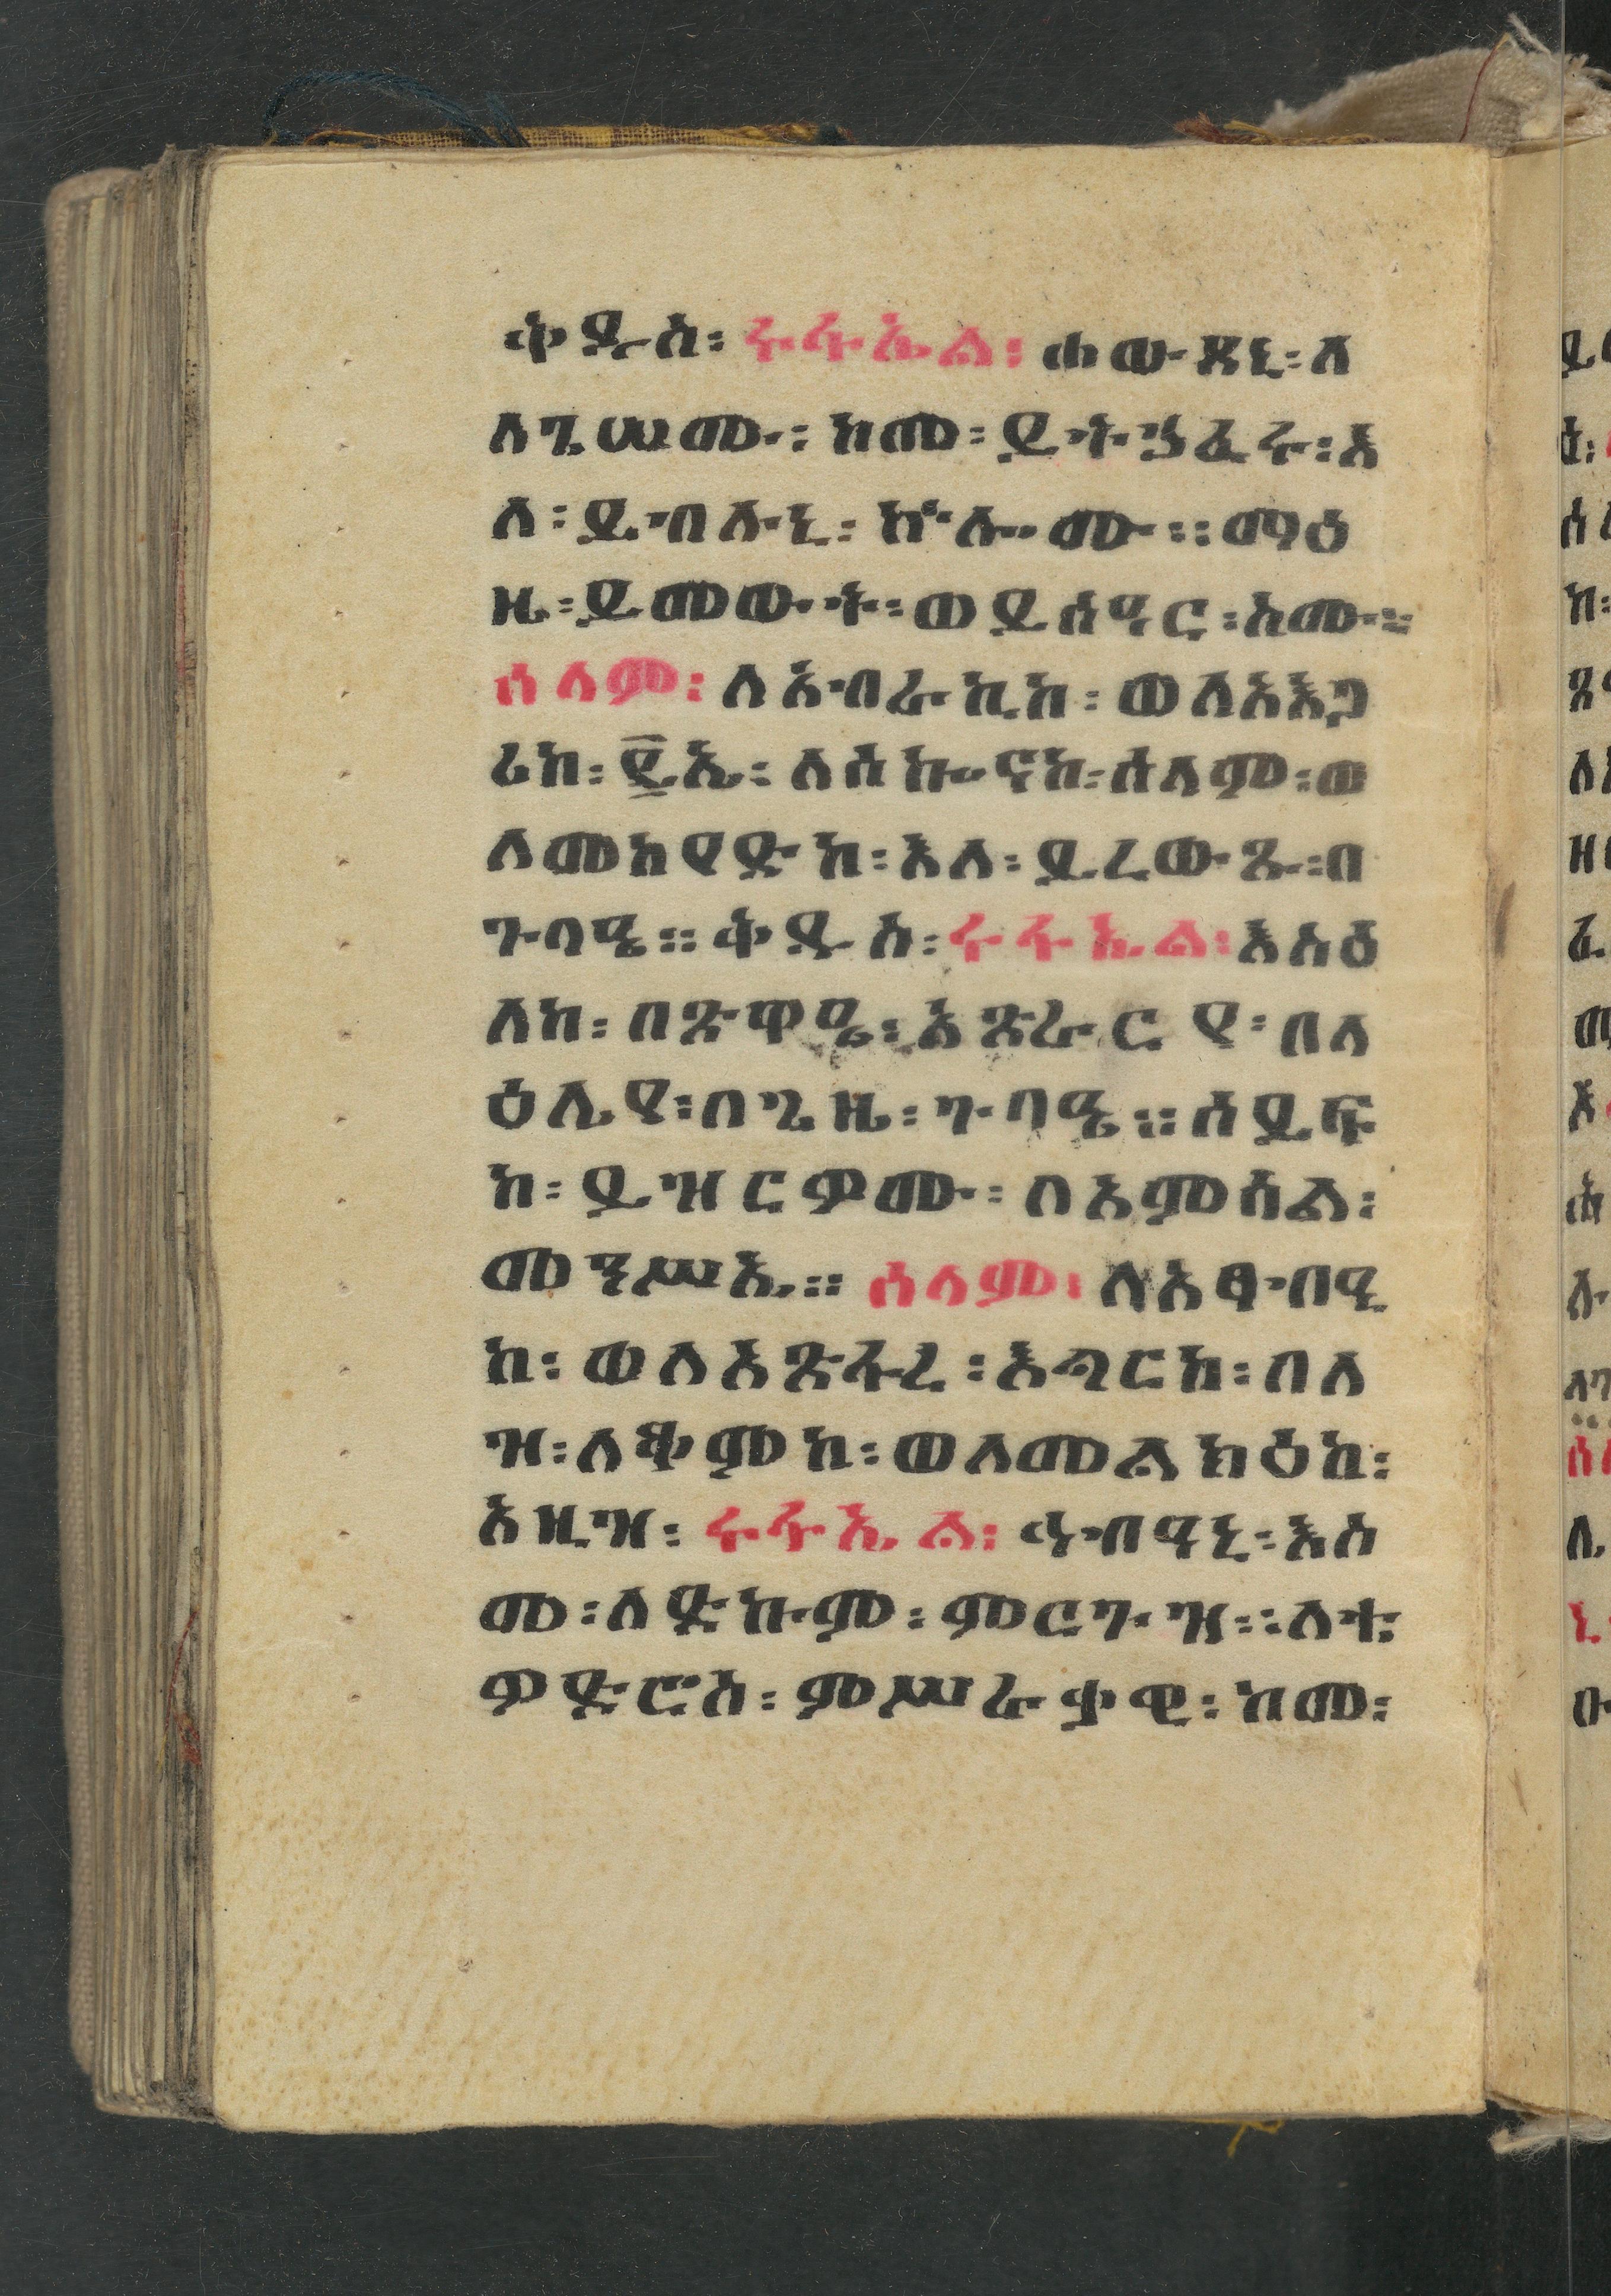 ቅዱስ፡ ሩፋኤል፡ ሐውጸኒ፡ ለ
ለጌሠሙ፡ ከመ፡ ይትኃፈሩ፡ እ
ለ፡ ይብሉኒ፡ ኵሎሙ ። ማዕ
ዜ፡ ይመውት፡ ወይሰዓር፡ ስሙ ።
ሰላም፡ ለአብራኪከ፡ ወለአእጋ
ሪከ፡ ፪ኤ፡ ለሰኰናከ፡ ሰላም፡ ወ
ለመከየድከ፡ እለ፡ ይረውጹ፡ በ
ጉባዔ ። ቅዱስ፡ ሩፋኤል፡ እስዕ
ለከ፡ በጽዋዔ፡ አጽራርየ፡ በላ
ዕሌየ፡ በጊዜ፡ ጉባዔ ። ሰይፍ
ከ፡ ይዝርዎሙ፡ በአምሳል፡
መንሥኤ ። ሰላም፡ ለአፃብዒ
ከ፡ ወለአጽፋረ፡ እግርከ፡ በላ
ዝ፡ ለቆምከ፡ ወለመልክዕከ፡
አዚዝ፡ ሩፋኤል፡ ዓብዓኒ፡ እስ
መ፡ ለድኩም፡ ምርጉዝ ። ለቴ
ዎድሮስ፡ ምሥራቃዊ፡ ከመ፡